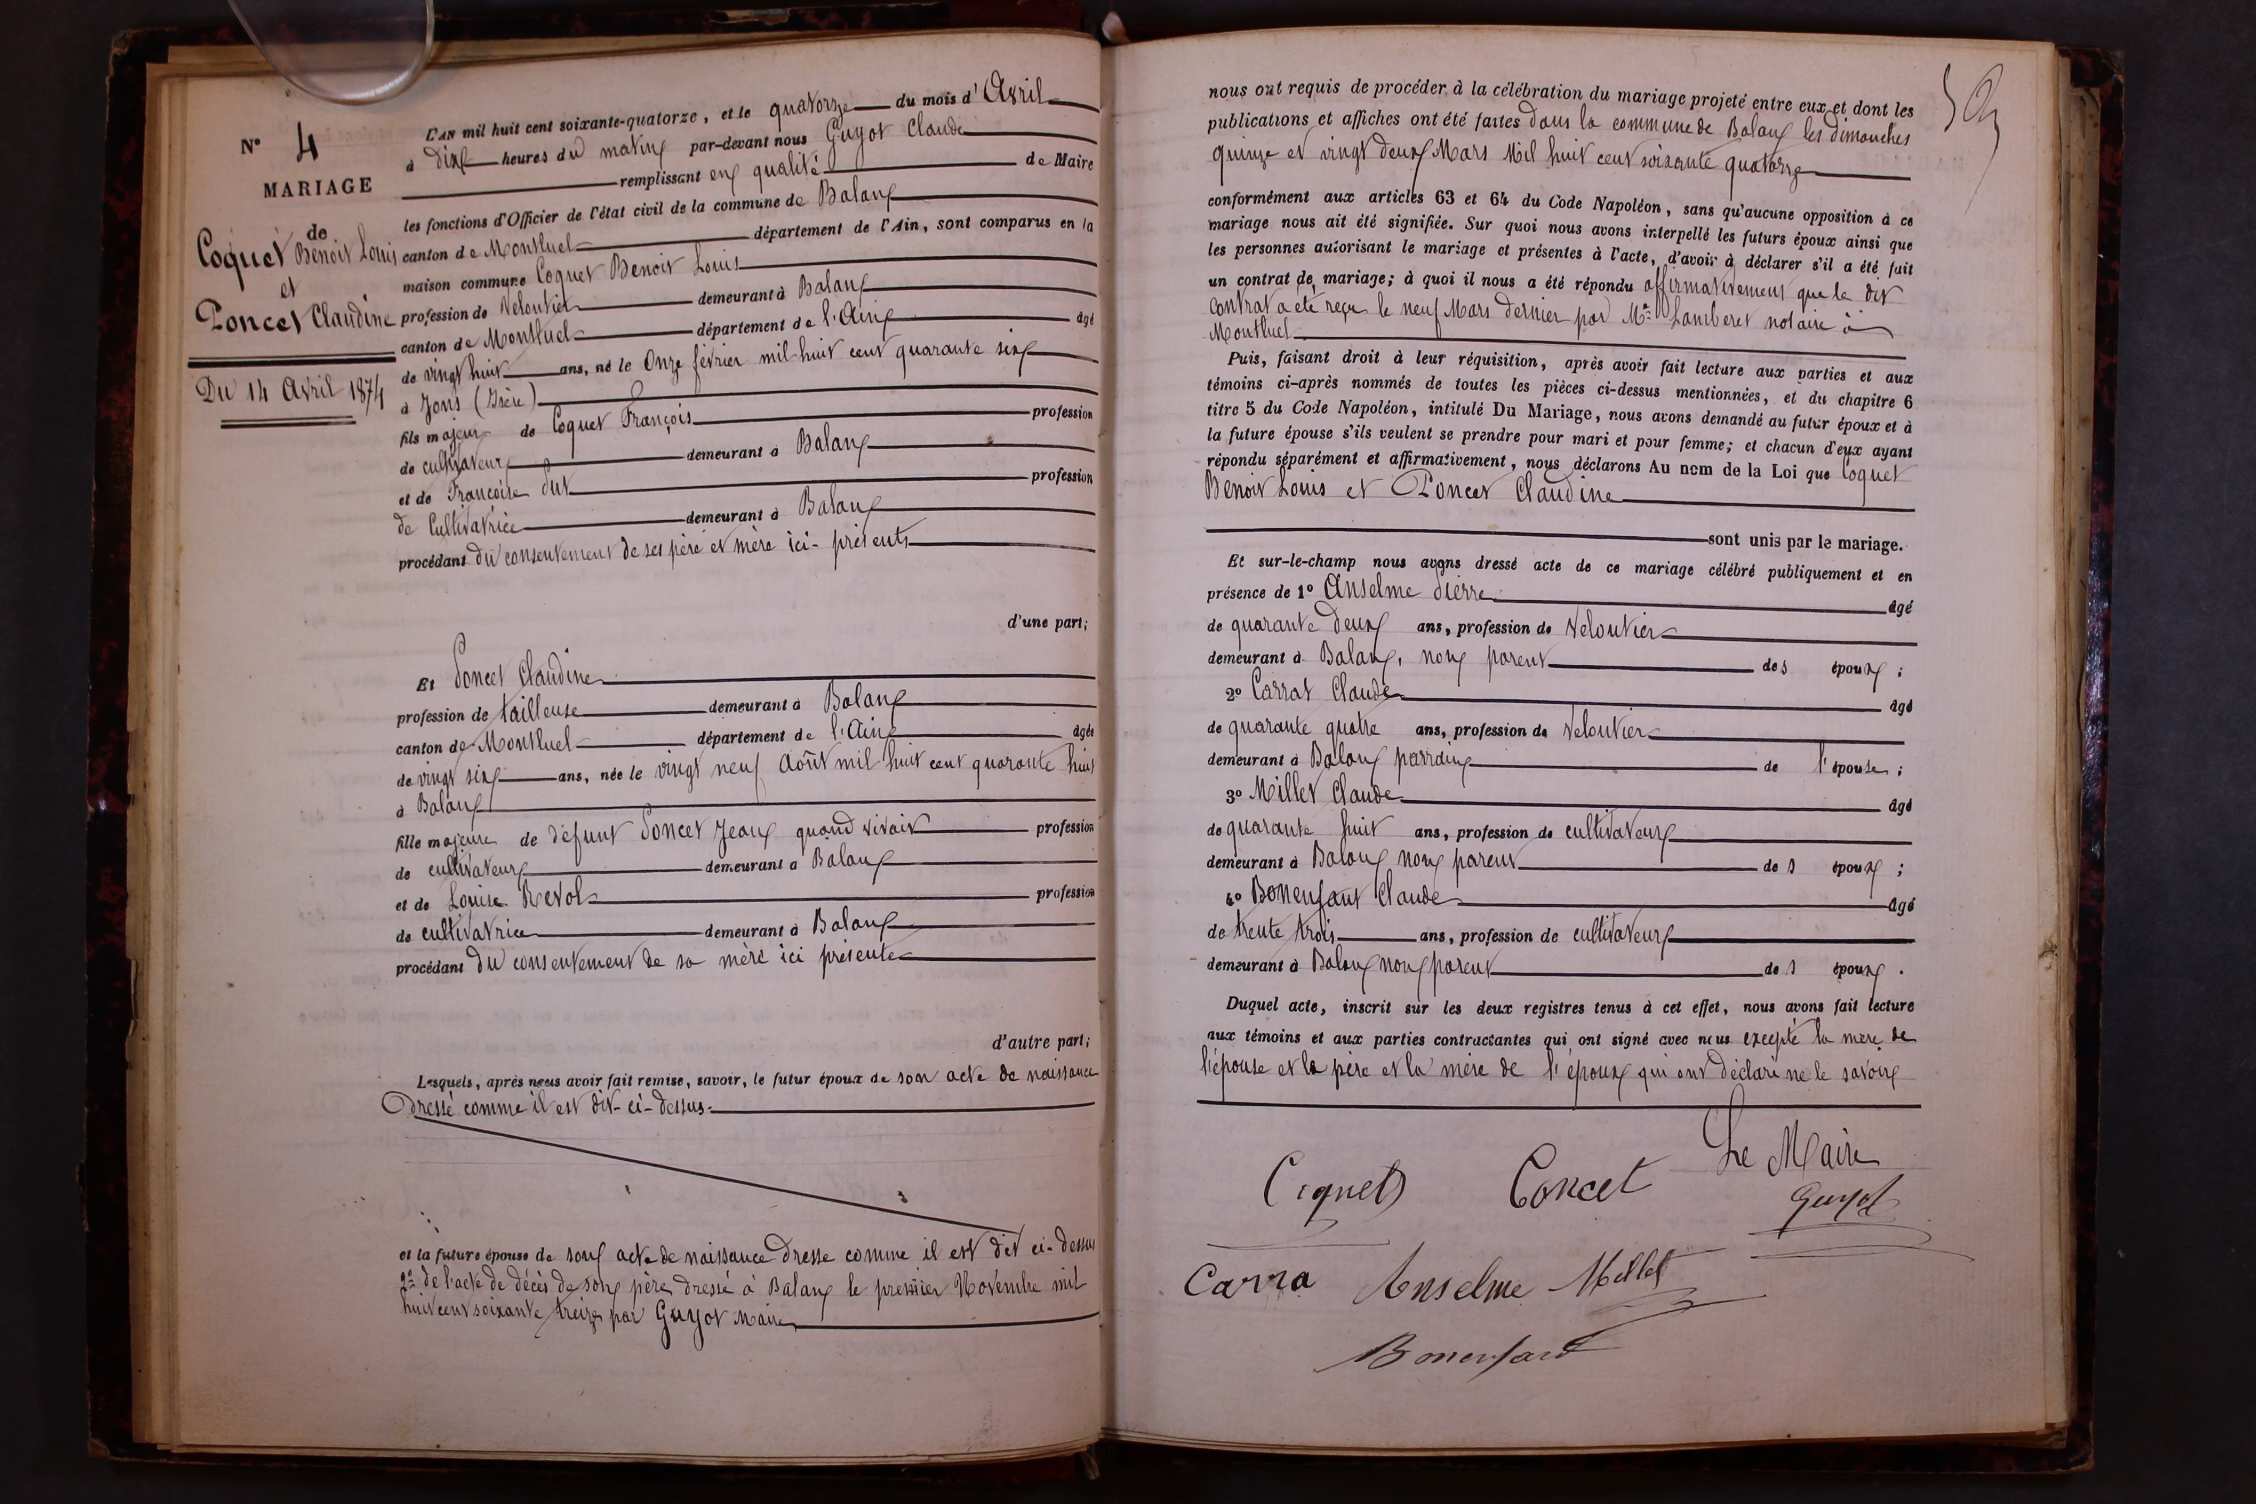 N° 4
MARIAGE
de
Coquet Benoit Louis
et
Poncet Claudine
Du 14 Avril 1874
L'AN mil huit cent soixante-quatorze, et le quatorze du mois d'Avril
à dix heures du matin par-devant nous Guyot Claude
remplissant en qualité de Maire
les fonctions d'Officier de l'état civil de la commune de Balan
canton de Montluel département de l'Ain, sont comparus en la
maison commune Coquet Benoit Louis
profession de Veloutier demeurant à Balan
canton de Montluel département de l'Ain âgé
de vingt huit ans, né le Onze février mil huit cent quarante six
à Jons (Isère)
fils majeur de Coquet François profession
de cultivateur demeurant à Balan
et de Françoise Dut profession
de Cultivatrice demeurant à Balan
procédant du consentement de ses père et mère ici-présents
d'une part;
Et Poncet Claudine
profession de tailleuse demeurant à Balan
canton de Montluel département de l'Ain âgée
de vingt six ans, née le vingt neuf Août mil huit cent quarante huit
à Balan
fille majeure de défunt Poncet Jean quand vivait profession
de cultivateur demeurant à Balan
et de Louise Revol profession
de cultivatrice demeurant à Balan
procédant du consentement de sa mère ici présente
d'autre part;
Lesquels, après nous avoir fait remise, savoir, le futur époux de son acte de naissance
Dressé comme il est dit-ci-dessus.
et la future épouse de son acte de naissance Dresse comme il est dit ci-dessus
2° de l'acte de décès de son père dressé à Balan le premier Novembre mil
huit cent soixante treize par Guyot Maire
nous ont requis de procéder à la célébration du mariage projeté entre eux et dont les
publications et affiches ont été faites dans la commune de Balan les dimanches
quinze et vingt deux Mars Mil huit cent soixante quatorze
conformément aux articles 63 et 64 du Code Napoléon, sans qu'aucune opposition à ce
mariage nous ait été signifiée. Sur quoi nous avons interpellé les futurs époux ainsi que
les personnes autorisant le mariage et présentes à l'acte, d'avoir à déclarer s'il a été fait
un contrat de mariage; à quoi il nous a été répondu affirmativement que le dit
contrat a été reçu le neuf Mars dernier par Me Lamberet notaire à
Montluel
Puis, faisant droit à leur réquisition, après avoir fait lecture aux parties et aux
témoins ci-après nommés de toutes les pièces ci-dessus mentionnées, et du chapitre 6
titre 5 du Code Napoléon, intitulé Du Mariage, nous avons demandé au futur époux et à
la future épouse s'ils veulent se prendre pour mari et pour femme; et chacun d'eux ayant
répondu séparément et affirmativement, nous déclarons Au nom de la Loi que Coquet
Benoit Louis et Poncet Claudine
sont unis par le mariage.
Et sur-le-champ nous avons dressé acte de ce mariage célébré publiquement et en
présence de 1° Anselme Pierre âgé
de quarante deux ans, profession de Veloutier
demeurant à Balan, non parent des époux;
2° Carrat Claude âgé
de quarante quatre ans, profession de Veloutier
demeurant à Balan parrain de l'épouse;
3° Millet Claude âgé
de quarante huit ans, profession de cultivateur
demeurant à Balan non parent des époux;
4° Bonenfant Claude âgé
de trente trois ans, profession de cultivateur
demeurant à Balan non parent des époux.
Duquel acte, inscrit sur les deux registres tenus à cet effet, nous avons fait lecture
aux témoins et aux parties contractantes qui ont signé avec nous excepté la mère de
l'épouse et le père et la mère de l'époux qui ont déclaré ne le savoir
Le Maire
Coquet Poncet Guyot
Carra Anselme Millet
Bonenfant